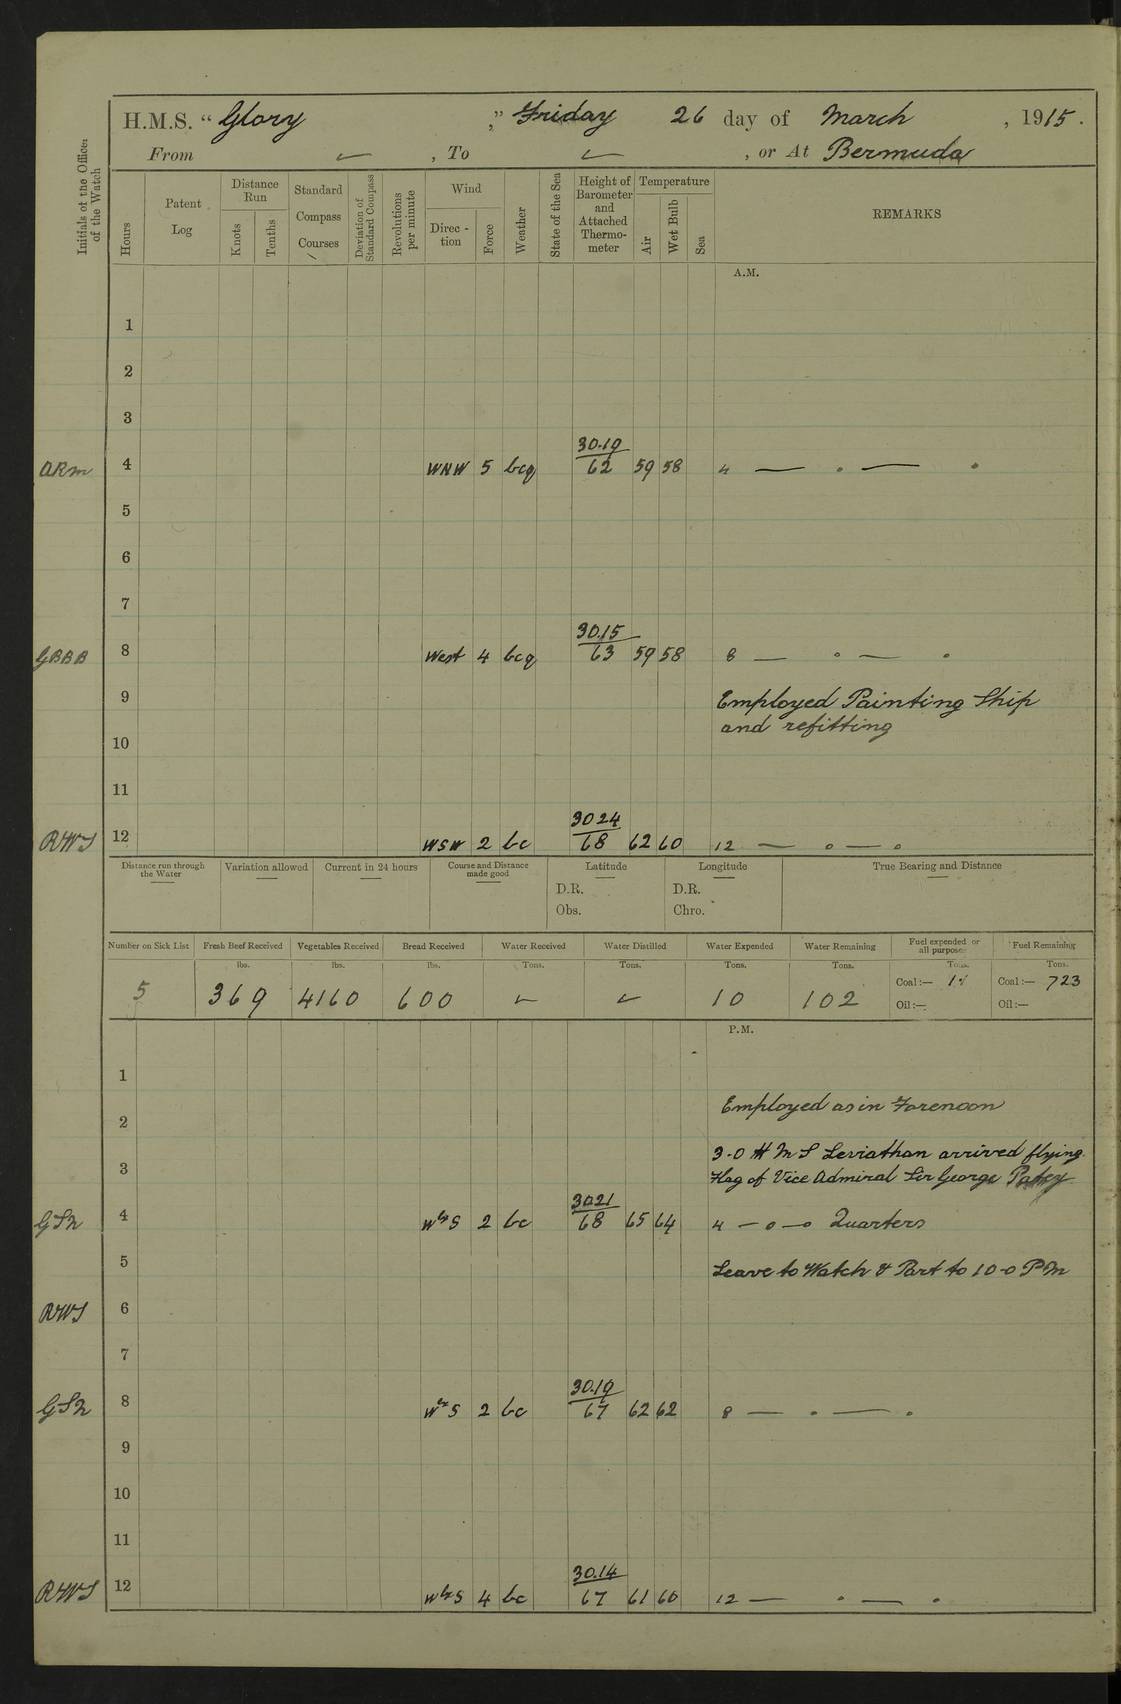 H.M.S. “ Glory ,” Friday 26 day of March , 1915 .
From ✓ , To ✓ , or At Bermuda
Initials of the Officer of the Watch
Hours
Patent Log
Distance Run
Knots
Tenths
Standard Compass Courses
Deviation of Standard Compass
Revolutions per minute
Wind
Direc - tion
Force
Weather
State of the Sea
Height of Barometer and Attached Thermo- meter
Temperature
Air
Wet Bulb
Sea
REMARKS
A.M.
1
2
3
30.19
ARM 4 WNW 5 bcq 62 59 58 4 — o — o
5
6
7
30.15
GBBB 8 West 4 bcq 63 59 58 8 — o — o
9 Employed Painting Ship
and refitting
10
11
3024
RWS 12 WSW 2 bc 68 62 60 12 — o — o
Distance run through the Water
Variation allowed
Current in 24 hours
Course and Distance made good
Latitude
D.R.
Obs.
Longitude
D.R.
Chro.
True Bearing and Distance
Number on Sick List
Fresh Beef Received
Vegetables Received
Bread Received
Water Received
Water Distilled
Water Expended
Water Remaining
Fuel expended or all purposes
Fuel Remaining
lbs. lbs. lbs. Tons. Tons. Tons. Tons. Tons. Tons.
5 369 4160 600 ✓ ✓ 10 102 Coal:— Coal:— 723
Oil:— Oil:—
P.M.
1
Employed as in Forenoon
2
3-0 H M S Leviathan arrived flying
3
Flag of Vice Admiral Sir George Patey
3021
4 W by S 2 bc 68 65 64 4 — o — o Quarters
5 Leave to Watch & Part to 10-0 PM
RWS 6
7
30.19
8 W by S 2 bc 67 62 62 8 — o — o
9
10
11
30.14
RWS 12 W by S 4 bc 67 61 60 12 — o — o